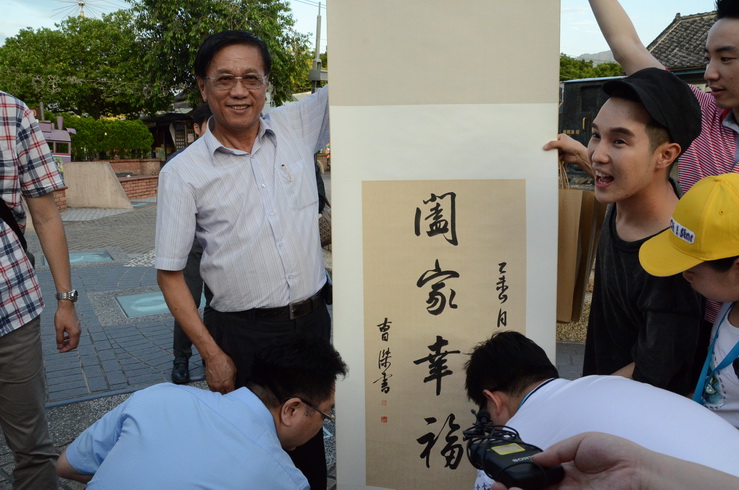 乙未
闔家幸福
曹傑書
SONY